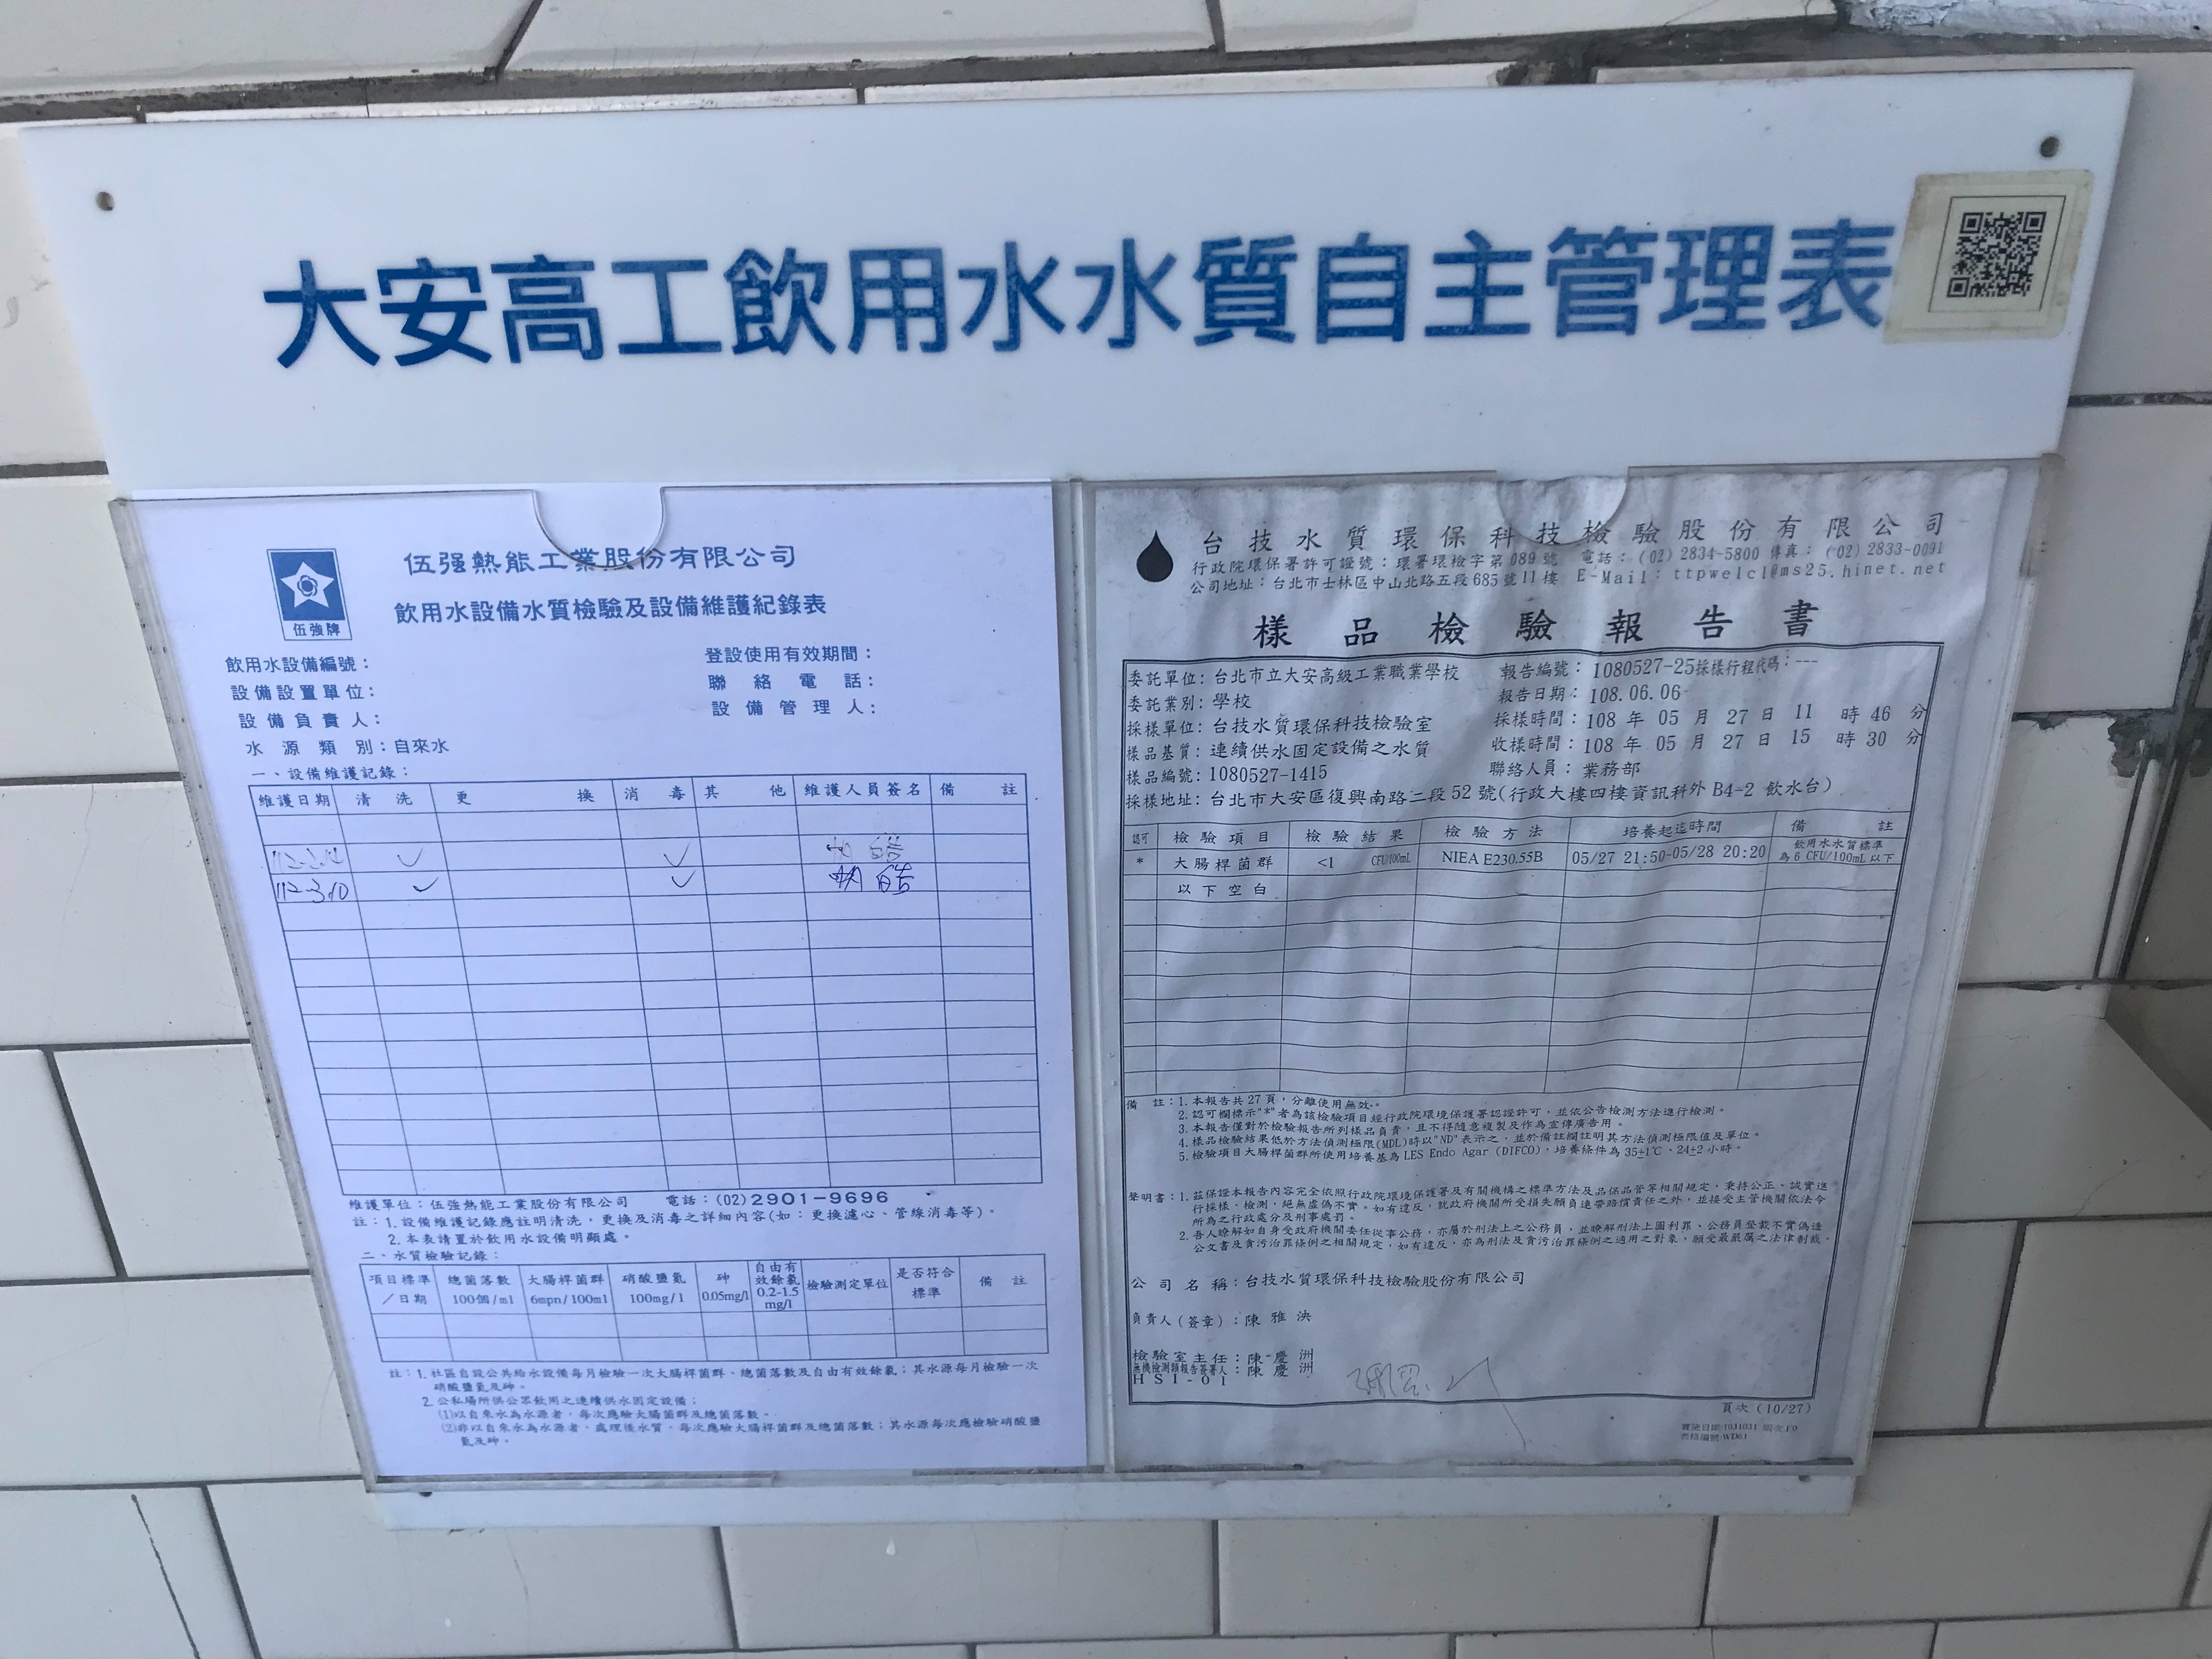 大安高工飲用水水質自主管理表
伍強牌
伍强熱能工業股份有限公司
飲用水設備水質檢驗及設備維護紀錄表
飲用水設備編號：
登設使用有效期間：
設備設置單位：
聯絡電話：
設備負責人：
設備管理人：
水源類別：自來水
一、設備維護記錄：
維護日期 清洗 更換 消毒 其他 維護人員簽名 備註
✓ ✓
112-3-10 ✓ ✓
維護單位：伍強熱能工業股份有限公司 電話：(02)2901-9696
註：1.設備維護記錄應註明清洗，更換及消毒之詳細內容(如：更換濾心、管線消毒等)。
2.本表請置於飲用水設備明顯處。
二、水質檢驗記錄：
項目標準／日期 總菌落數100個/ml 大腸桿菌群6mpn/100ml 硝酸鹽氮100mg/l 砷0.05mg/l 自由有效餘氯0.2-1.5mg/l 檢驗測定單位 是否符合標準 備註
註：1.社區自設公共給水設備每月檢驗一次大腸桿菌群、總菌落數及自由有效餘氯；其水源每月檢驗一次
硝酸鹽氮及砷。
2.公私場所供公眾飲用之連續供水固定設備；
(1)以自來水為水源者，每次應驗大腸菌群及總菌落數。
(2)非以自來水為水源者，處理後水質，每次應驗大腸桿菌群及總菌落數；其水源每次應檢驗硝酸鹽
氮及砷。
台技水質環保科技檢驗股份有限公司
行政院環保署許可證號：環署環檢字第089號 電話：(02)2834-5800 傳真：(02)2833-0091
公司地址：台北市士林區中山北路五段685號11樓 E-Mail：ttpwelcl@ms25.hinet.net
樣品檢驗報告書
委託單位：台北市立大安高級工業職業學校 報告編號：1080527-25採樣行程代碼：---
委託業別：學校 報告日期：108.06.06
採樣單位：台技水質環保科技檢驗室 採樣時間：108 年 05 月 27 日 11 時 46 分
樣品基質：連續供水固定設備之水質 收樣時間：108 年 05 月 27 日 15 時 30 分
樣品編號：1080527-1415 聯絡人員：業務部
採樣地址：台北市大安區復興南路二段52號(行政大樓四樓資訊科外B4-2 飲水台)
認可 檢驗項目 檢驗結果 檢驗方法 培養起迄時間 備註
* 大腸桿菌群 <1 CFU/100mL NIEA E230.55B 05/27 21:50-05/28 20:20 飲用水水質標準為6 CFU/100mL以下
以下空白
備註：1.本報告共27頁，分離使用無效。
2.認可欄標示"*"者為該檢驗項目經行政院環境保護署認證許可，並依公告檢測方法進行檢測。
3.本報告僅對於檢驗報告所列樣品負責，且不得隨意複製及作為宣傳廣告用。
4.樣品檢驗結果低於方法偵測極限(MDL)時以"ND"表示之，並於備註欄註明其方法偵測極限值及單位。
5.檢驗項目大腸桿菌群所使用培養基為LES Endo Agar (DIFCO)，培養條件為35±1℃、24±2小時。
聲明書：1.茲保證本報告內容完全依照行政院環境保護署及有關機構之標準方法及品保品管等相關規定，秉持公正、誠實進
行採樣、檢測，絕無虛偽不實。如有違反，就政府機關所受損失願負連帶賠償責任之外，並接受主管機關依法令
所為之行政處分及刑事處罰。
2.吾人瞭解如自身受政府機關委任從事公務，亦屬於刑法上之公務員，並瞭解刑法上圖利罪、公務員登載不實偽造
公文書及貪污治罪條例之相關規定，如有違反，亦為刑法及貪污治罪條例之適用之對象，願受最嚴厲之法律制裁。
公司名稱：台技水質環保科技檢驗股份有限公司
負責人(簽章)：陳雅泱
檢驗室主任：陳慶洲
無機檢測類報告簽署人：陳慶洲
HSI-01
頁次(10/27)
實施日期:1031031 版次:F0
表格編號:WD61